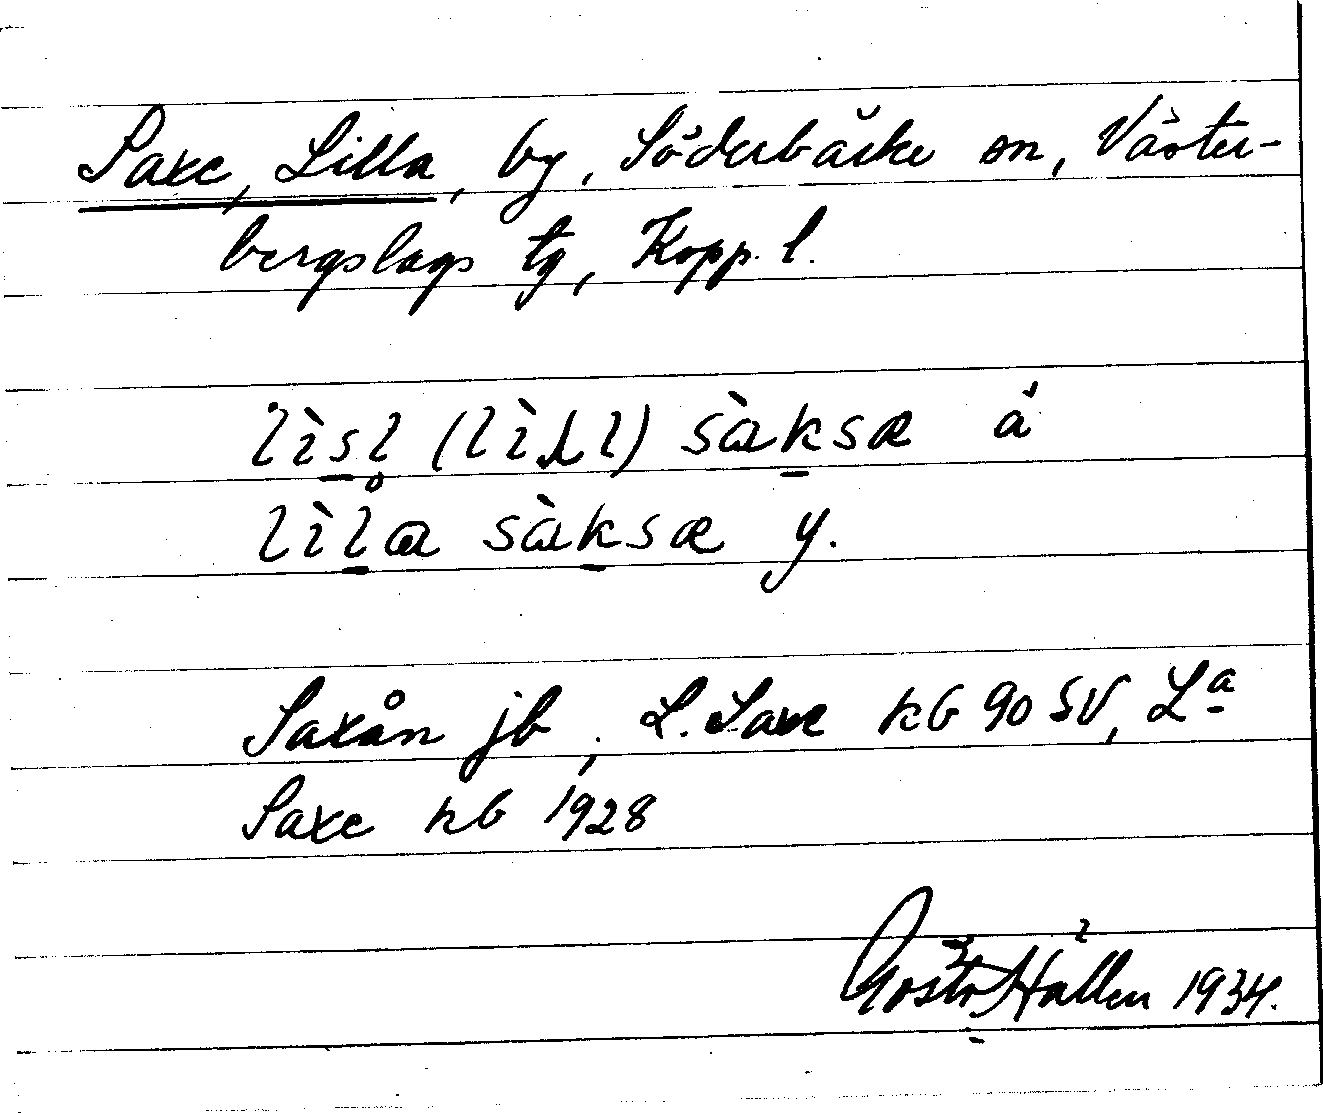 Saxe, Lilla, by, Söderbärke sn, Väster-
bergslags tg, Kopp. l.
lìsl̥ (lìɬl) sàksæ ä
lìla sàksæ y.
Saxån jb, L. Saxe kb 90 SV, Lª
Saxe kb 1928
Gösta Hallén 1934.